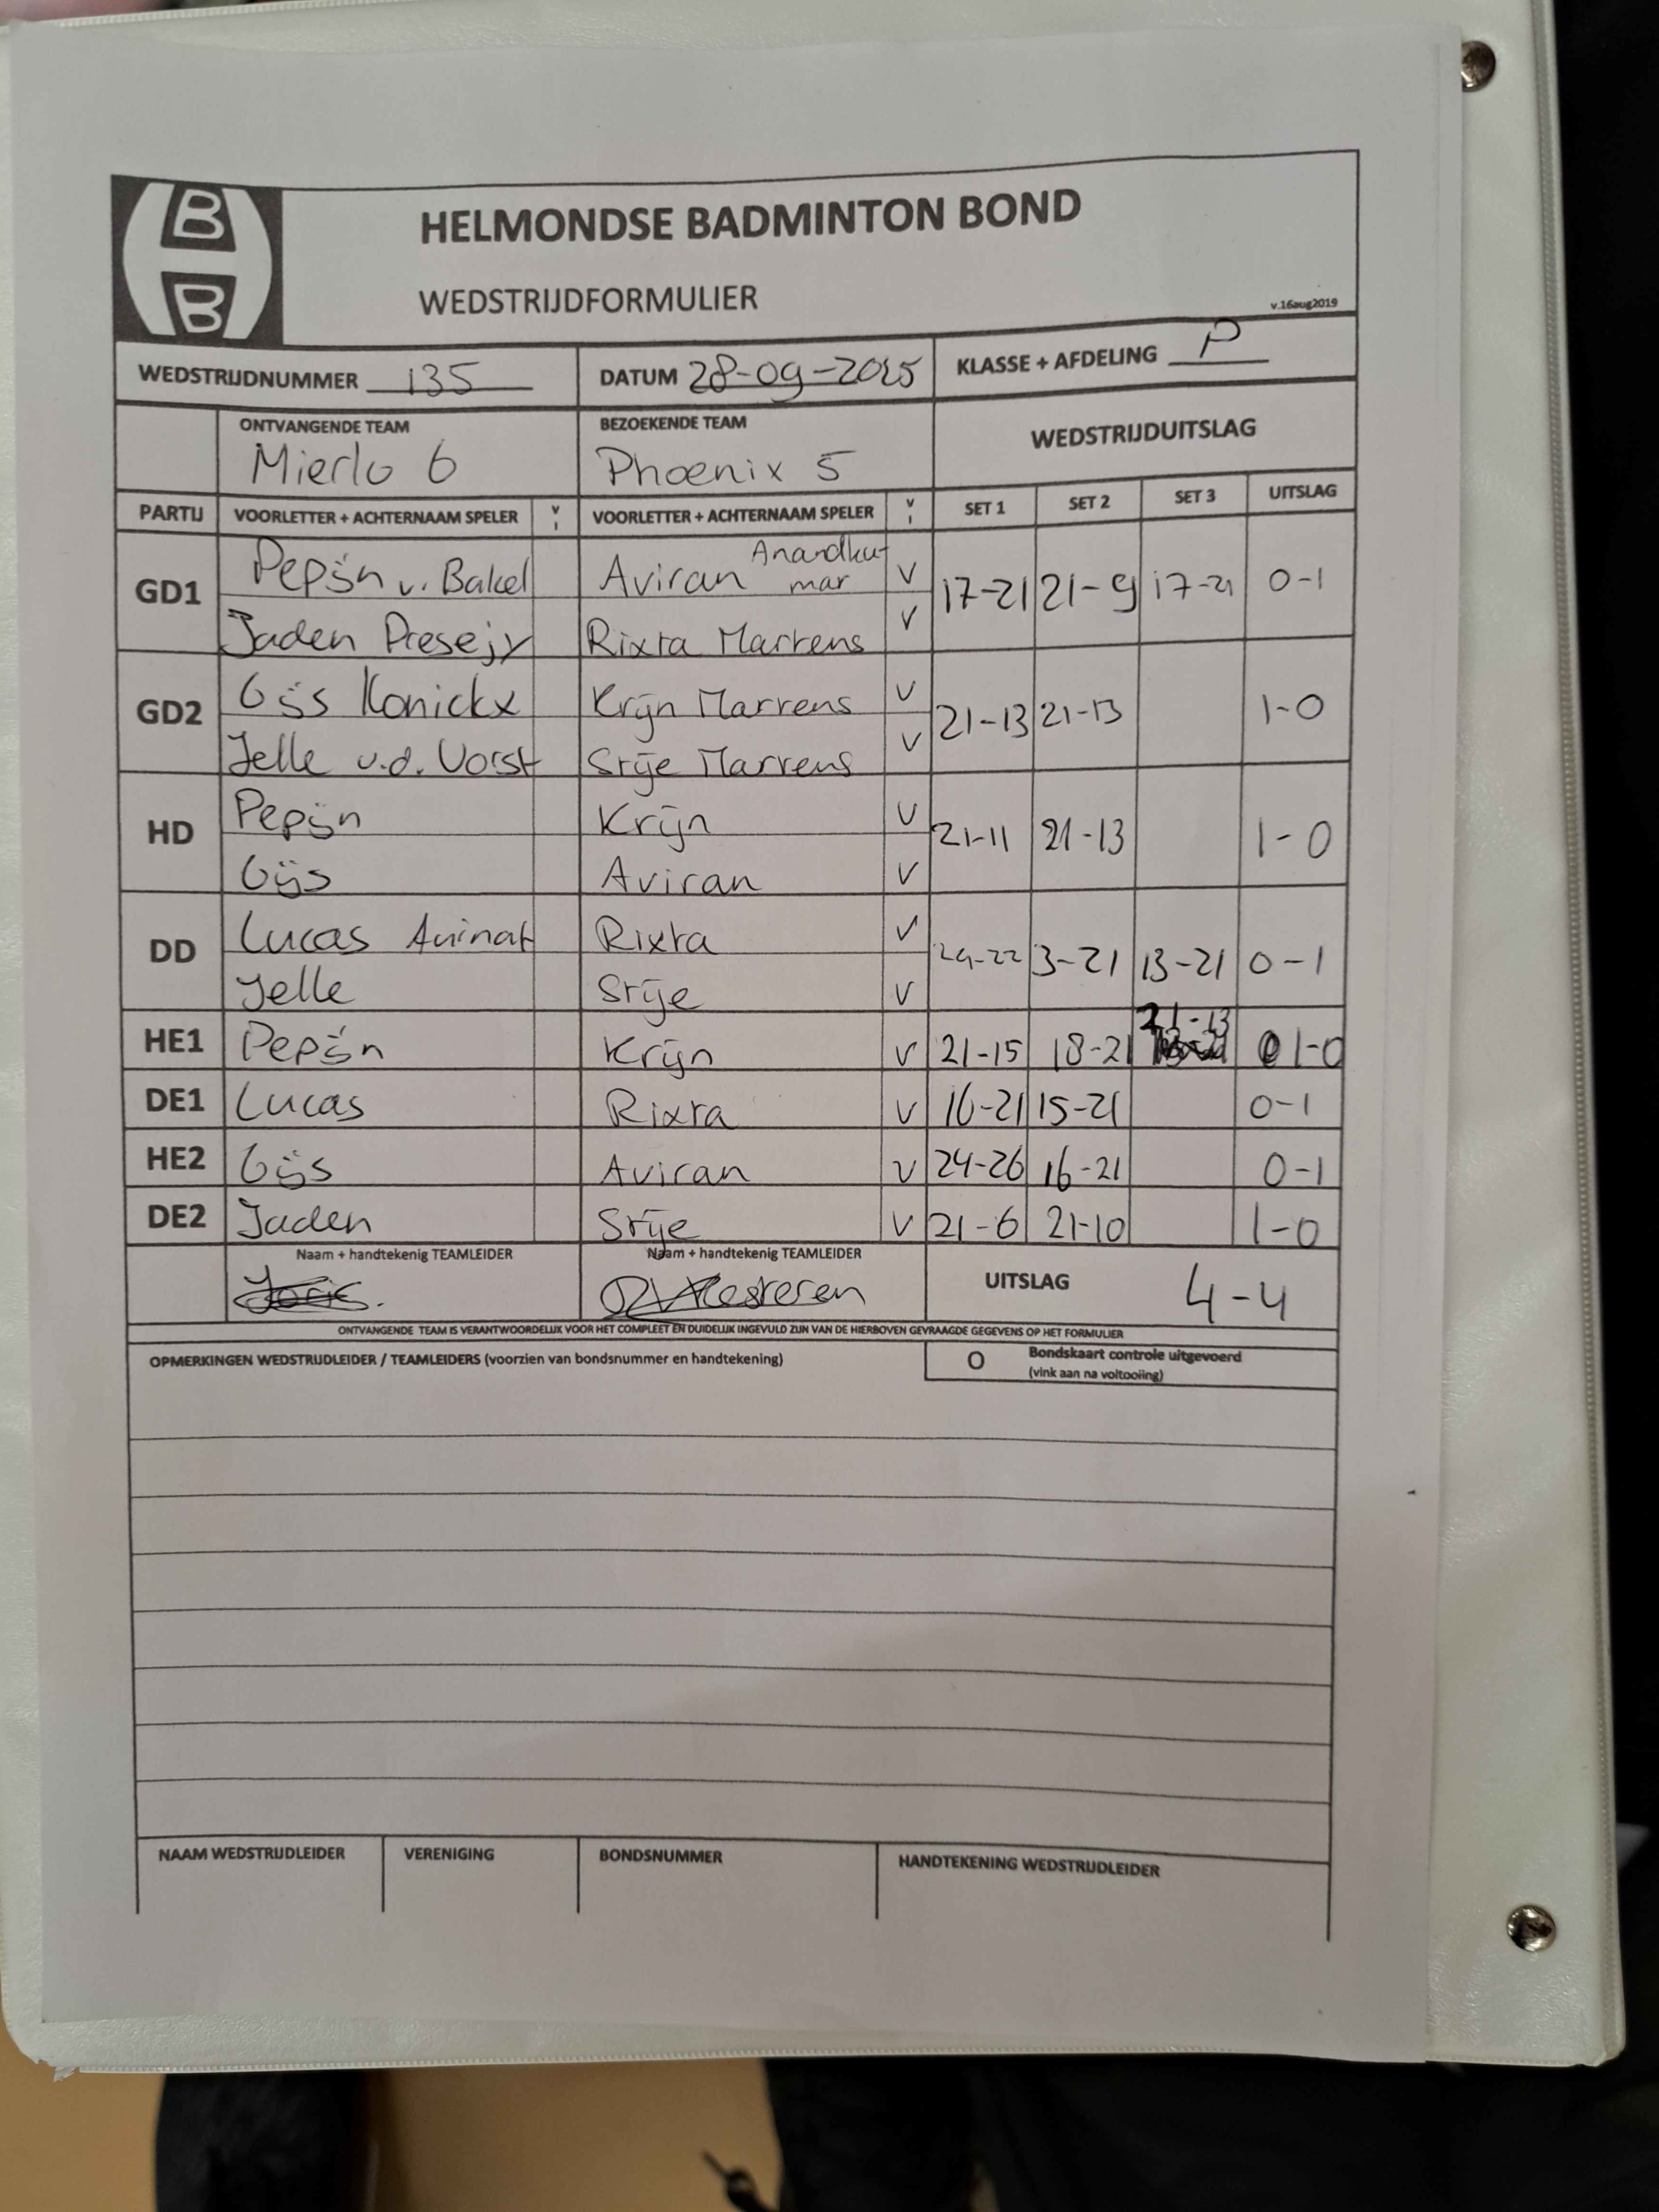 B
B
HELMONDSE BADMINTON BOND
WEDSTRIJDFORMULIER
v.16aug2019
WEDSTRIJDNUMMER 135 DATUM 28-09-2025 KLASSE + AFDELING P
ONTVANGENDE TEAM BEZOEKENDE TEAM WEDSTRIJDUITSLAG
Mierlo 6 Phoenix 5
PARTIJ VOORLETTER + ACHTERNAAM SPELER V I VOORLETTER + ACHTERNAAM SPELER V I SET 1 SET 2 SET 3 UITSLAG
GD1 Pepijn v. Bakel Aviran Anandkumar V 17-21 21-9 17-21 0-1
Jaden Rixta Martens V
GD2 Gijs Konickx Krijn Martens V 21-13 21-13 1-0
Jelle v.d. Vorst Stije Martens V
HD Pepijn Krijn V 21-11 21-13 1-0
Gijs Aviran V
DD Lucas Rixta V 24-22 3-21 13-21 0-1
Jelle Stije V
HE1 Pepijn Krijn V 21-15 18-21 21-13 1-0
DE1 Lucas Rixta V 16-21 15-21 0-1
HE2 Gijs Aviran V 24-26 16-21 0-1
DE2 Jaden Stije V 21-6 21-10 1-0
Naam + handtekenig TEAMLEIDER Naam + handtekenig TEAMLEIDER
Joris. UITSLAG 4-4
ONTVANGENDE TEAM IS VERANTWOORDELIJK VOOR HET COMPLEET EN DUIDELIJK INGEVULD ZIJN VAN DE HIERBOVEN GEVRAAGDE GEGEVENS OP HET FORMULIER
OPMERKINGEN WEDSTRIJDLEIDER / TEAMLEIDERS (voorzien van bondsnummer en handtekening) O Bondskaart controle uitgevoerd
(vink aan na voltooiing)
NAAM WEDSTRIJDLEIDER VERENIGING BONDSNUMMER HANDTEKENING WEDSTRIJDLEIDER